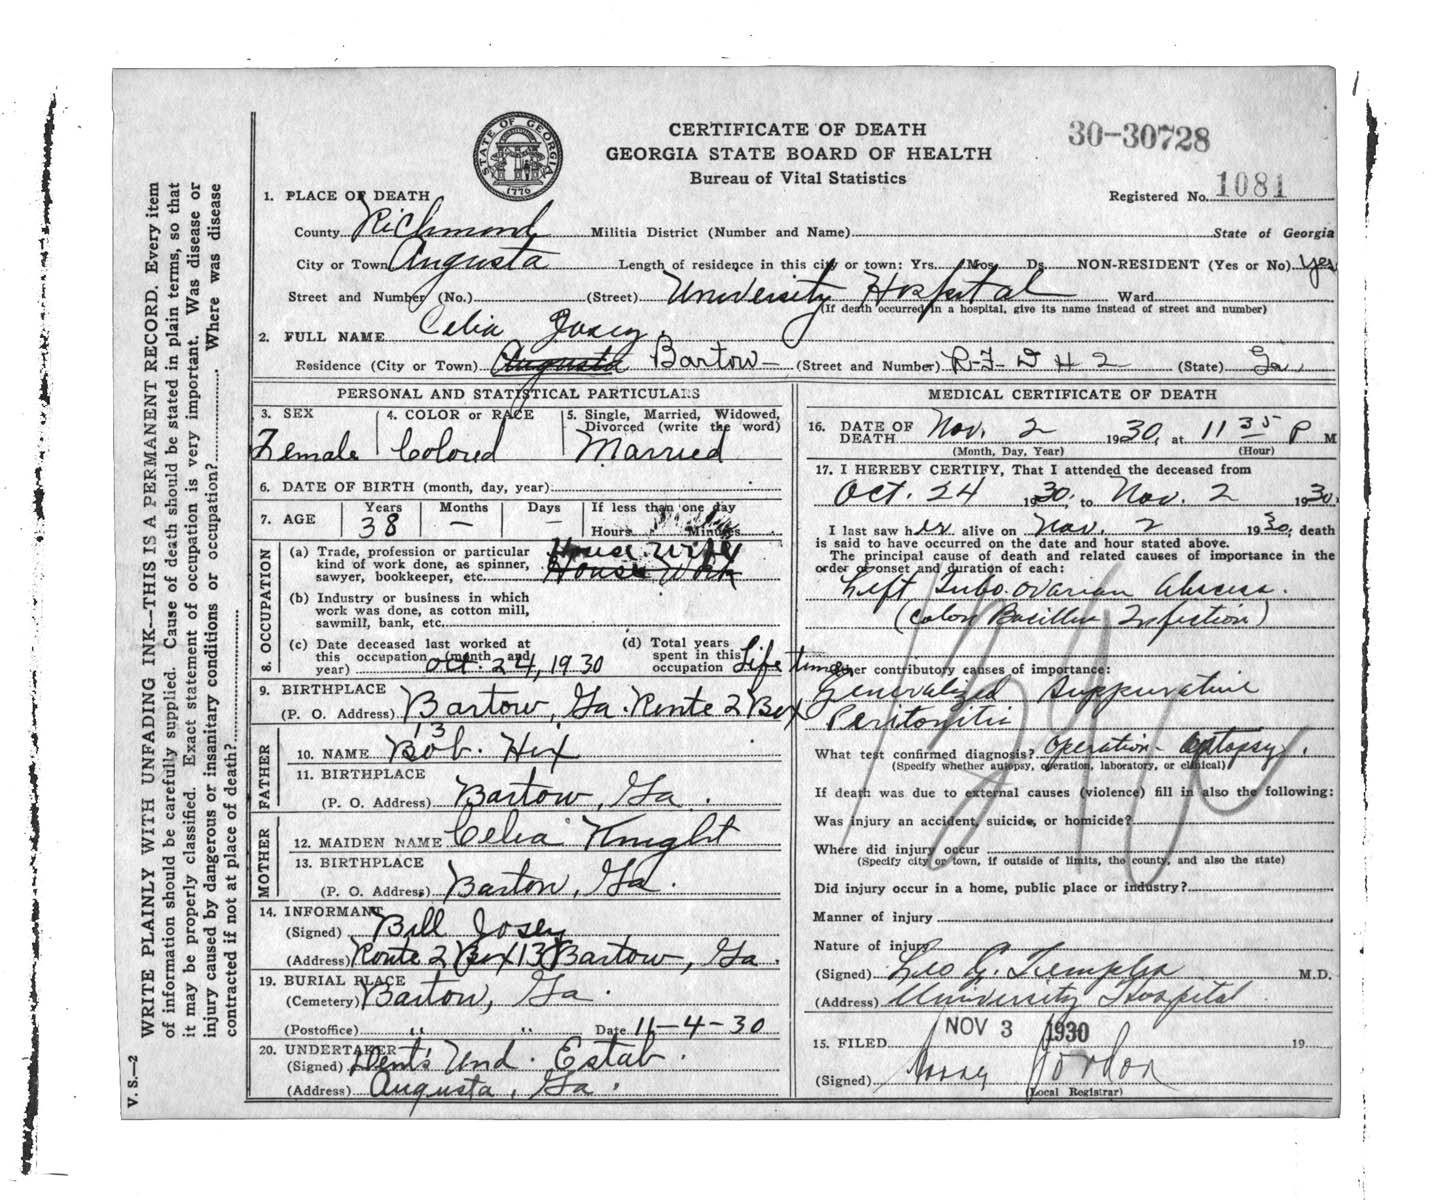 WRITE PLAINLY WITH UNFADING INK—THIS IS A PERMANENT RECORD. Every item
of information should be carefully supplied. Cause of death should be stated in plain terms, so that
it may be properly classified. Exact statement of occupation is very important. Was disease or
injury caused by dangerous or insanitary conditions or occupation? Where was disease
contracted if not at place of death?
V. S.—2
STATE OF GEORGIA
1776
CERTIFICATE OF DEATH
GEORGIA STATE BOARD OF HEALTH
Bureau of Vital Statistics
30-30728
Registered No. 1081
1. PLACE OF DEATH
County Richmond Militia District (Number and Name) State of Georgia
City or Town Augusta Length of residence in this city or town: Yrs. Mos. Ds. NON-RESIDENT (Yes or No) Yes
Street and Number (No.) (Street) University Hospital Ward
(If death occurred in a hospital, give its name instead of street and number)
2. FULL NAME Celia Josey.
Residence (City or Town) Augusta Bartow (Street and Number) R-F-D # 2 (State) Ga.
PERSONAL AND STATISTICAL PARTICULARS
3. SEX 4. COLOR or RACE 5. Single, Married, Widowed,
Divorced (write the word)
Female Colored Married
6. DATE OF BIRTH (month, day, year)
7. AGE Years Months Days If less than one day
38 — — Hours Minutes
8. OCCUPATION
(a) Trade, profession or particular House Wife
kind of work done, as spinner,
sawyer, bookkeeper, etc. House Work
(b) Industry or business in which
work was done, as cotton mill,
sawmill, bank, etc.
(c) Date deceased last worked at (d) Total years
this occupation (month and spent in this
year) Oct. 24, 1930 occupation Life time
9. BIRTHPLACE
(P. O. Address) Bartow, Ga. Route 2 Box
13
FATHER
10. NAME Bob. Hix
11. BIRTHPLACE
(P. O. Address) Bartow, Ga.
MOTHER
12. MAIDEN NAME Celia Knight
13. BIRTHPLACE
(P. O. Address) Bartow, Ga.
14. INFORMANT
(Signed) Bill Josey
(Address) Route 2 Box 13 Bartow, Ga.
19. BURIAL PLACE
(Cemetery) Bartow, Ga.
(Postoffice) " " Date 11-4-30
20. UNDERTAKER
(Signed) Dent's Und. Estab.
(Address) Augusta, Ga.
MEDICAL CERTIFICATE OF DEATH
16. DATE OF
DEATH Nov. 2 1930, at 11 35 P M
(Month, Day, Year) (Hour)
17. I HEREBY CERTIFY, That I attended the deceased from
Oct. 24 1930, to Nov. 2 1930.
I last saw her alive on Nov. 2 1930, death
is said to have occurred on the date and hour stated above.
The principal cause of death and related causes of importance in the
order of onset and duration of each:
Left Tubo. ovarian Abscess.
(Colon Bacillus Infection)
Other contributory causes of importance:
Generalized Suppurative
Peritonitis
What test confirmed diagnosis? Operation - autopsy.
(Specify whether autopsy, operation, laboratory, or clinical)
If death was due to external causes (violence) fill in also the following:
Was injury an accident, suicide, or homicide?
Where did injury occur
(Specify city or town, if outside of limits, the county, and also the state)
Did injury occur in a home, public place or industry?
Manner of injury
Nature of injury
(Signed) Leo G. M.D.
(Address) University Hospital
15. FILED NOV 3 1930 19
(Signed) Jordon
(Local Registrar)